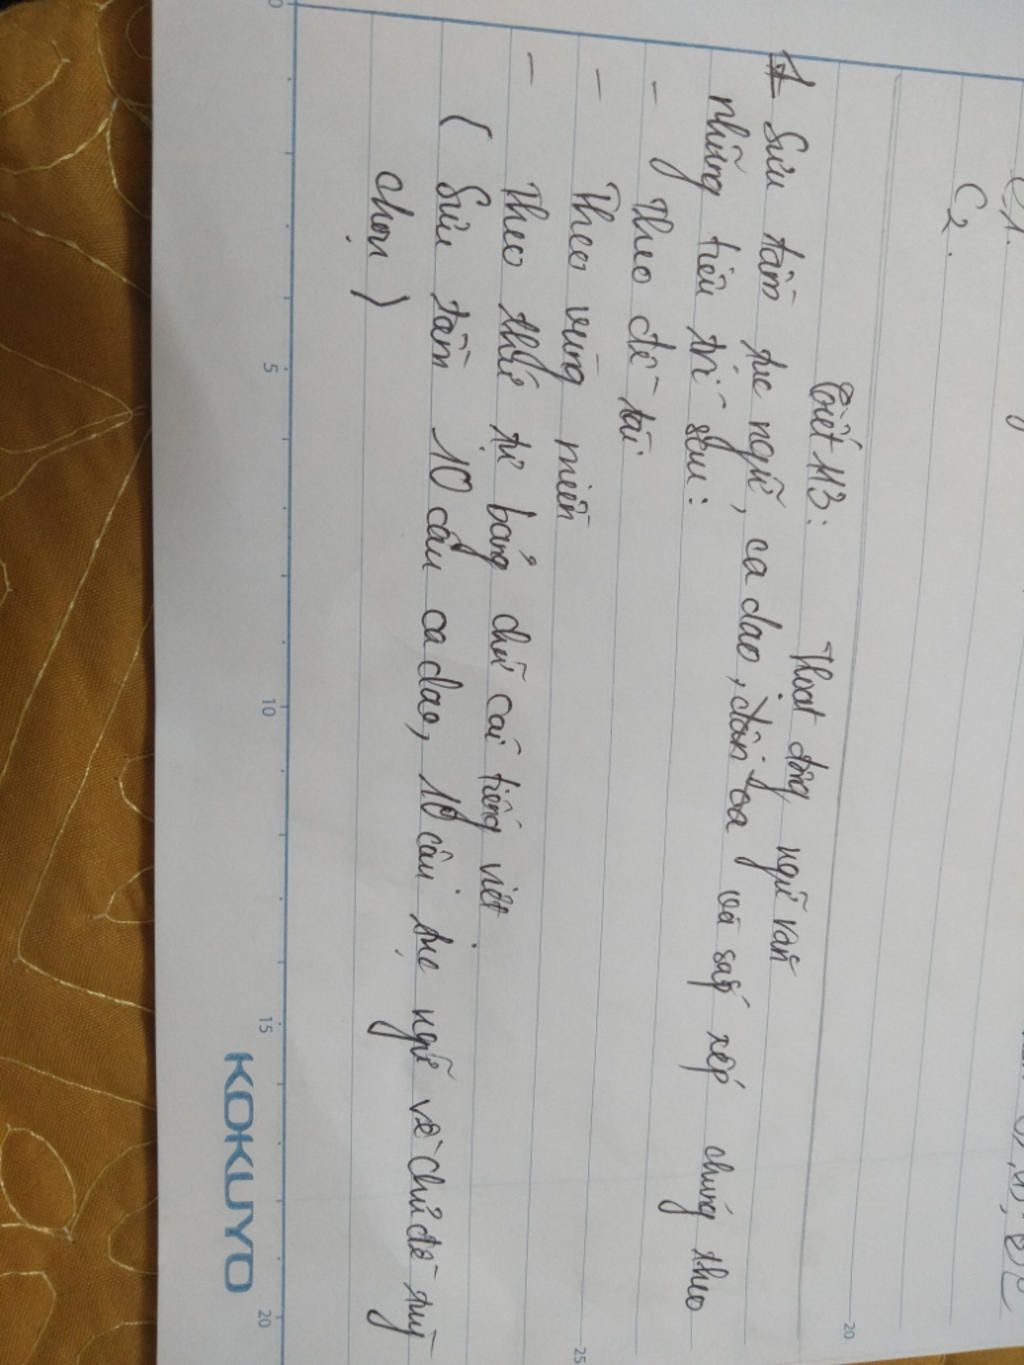 C1.
C2.
Tiết 113: Hoạt động ngữ văn
Sưu tầm tục ngữ, ca dao, dân ca và sắp xếp chúng theo
những tiêu trí sau:
- Theo đề tài
- Theo vùng miền
- Theo thứ tự bảng chữ cái tiếng việt
( Sưu tầm 10 câu ca dao, 10 câu tục ngữ về chủ đề tuỳ
chọn )
0
5
10
15
20
20
25
KOKUYO